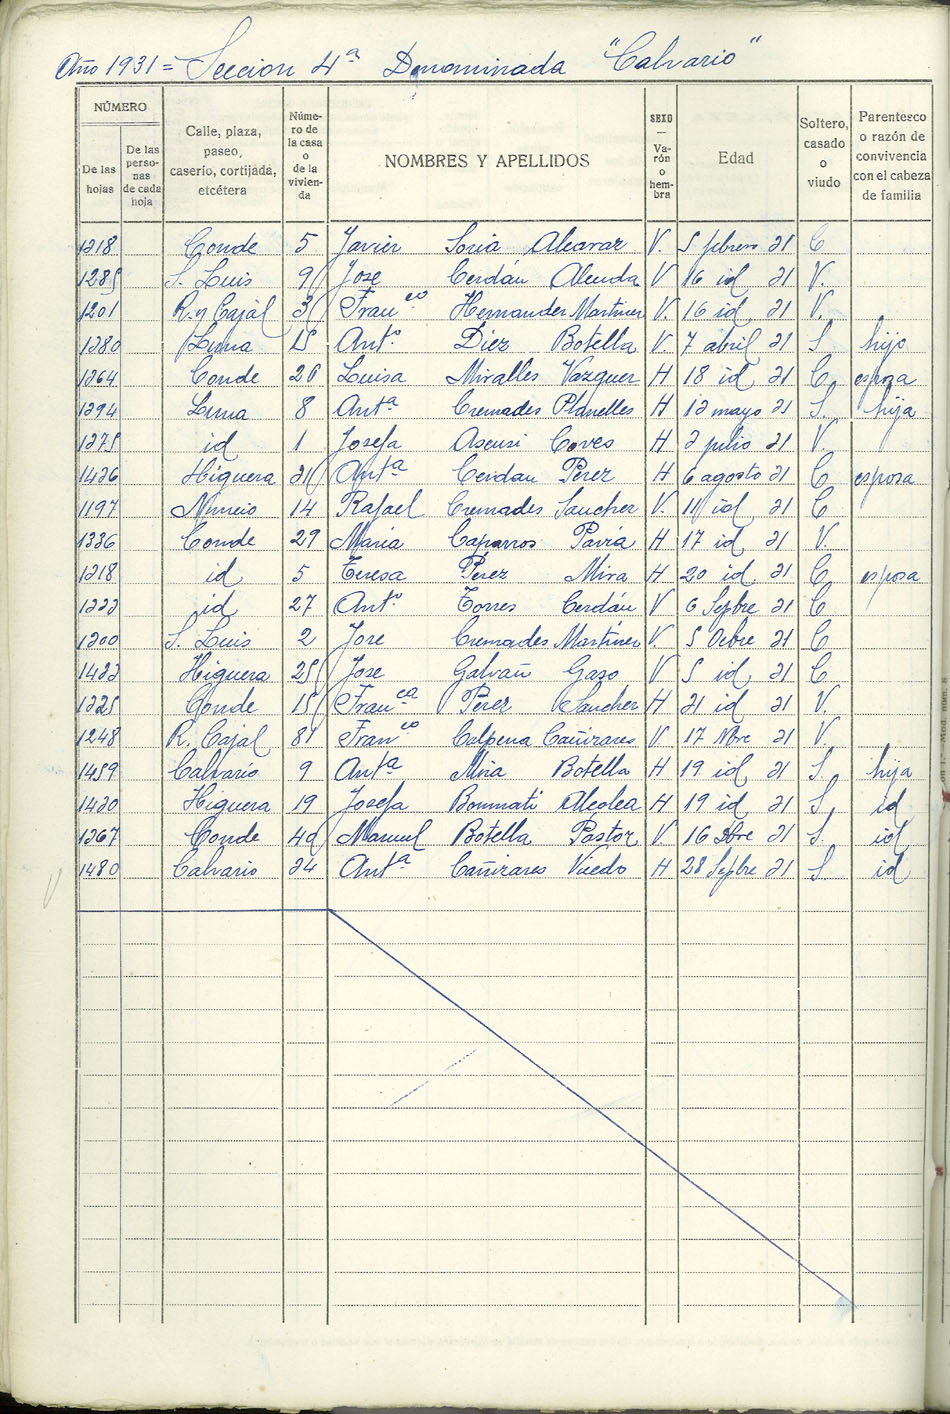 Año 1931 = Seccion 4ª Denominada "Calvario"
NÚMERO
De las hojas
De las perso- nas de cada hoja
Calle, plaza, paseo, caserío, cortijada, etcétera
Núme- ro de la casa o de la vivien- da
NOMBRES Y APELLIDOS
SEXO — Va- rón o hem- bra
Edad
Soltero, casado o viudo
Parentesco o razón de convivencia con el cabeza de familia
1318 Conde 5 Javier Soria Alcaraz V. 5 febrero 31 C
1285 S. Luis 9 Jose Cerdán Alenda V 16 id 31 V.
1201 R. y Cajal 3 Franco Hernandez Martinez V. 16 id 31 V.
1380 Luna 15 Antº Diez Botella V. 7 abril 31 S hijo
1364 Conde 26 Luisa Miralles Vazquez H 18 id 31 C esposa
1394 Luna 8 Antª Cremades Planelles H 13 mayo 31 S. hija
1375 id 1 Josefa Asensi Coves H 3 julio 31 V.
1436 Higuera 31 Antª Cerdan Perez H 6 agosto 31 C esposa
1197 14 Rafael Cremades Sanchez V. 11 id 31 C
1336 Conde 29 Maria Caparros Pavia H 17 id 31 V.
1318 id 5 Teresa Perez Mira H 20 id 31 C esposa
1333 id 27 Antº Torres Cerdán V 6 Sepbre 31 C
1300 S. Luis 2 Jose Cremades Martinez V. 5 Octbre 31 C
1433 Higuera 25 Jose Galvañ Gazo V 5 id 31 C
1325 Conde 15 Franca Perez Sanchez H 21 id 31 V.
1248 R. Cajal 81 Franco Calpena Cañizares V. 17 Nbre 31 V.
1459 Calvario 9 Antª Mira Botella H 19 id 31 S. hija
1430 Higuera 19 Josefa Bonmati Alcolea H 19 id 31 S. id
1367 Conde Manuel Botella Pastor V. 16 Dbre 31 S. id
1480 Calvario 34 Antª Cañizares H 28 Sepbre 31 S id